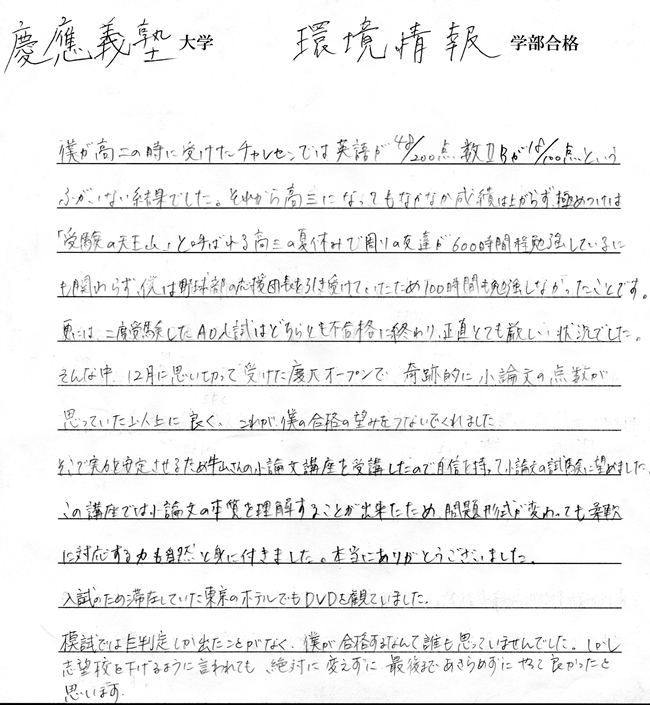 慶應義塾大学 環境情報学部合格
僕が高二の時に受けたチャレセンでは英語が48/200点 数ⅡBが18/100点という
ふがいない結果でした。それから高三になってもなかなか成績は上がらず、極めつけは
「受験の天王山」と呼ばれる高三の夏休みで周りの友達が600時間程勉強しているに
も関わらず、僕は野球部の応援団長を引き受けていたため100時間も勉強しなかったことです。
更には、二度受験したAO入試はどちらとも不合格に終わり、正直とても厳しい状況でした。
そんな中、12月に思い切って受けた慶大オープンで 奇跡的に小論文の点数が
思っていた以上に良く、これが僕の合格の望みをつないでくれました
そこで実力を安定させるため牛山さんの小論文講座を受講したので自信を持って小論文の試験に望めました。
この講座では小論文の本質を理解することが出来たため、問題形式が変わっても柔軟
に対応する力も自然と身に付きました。本当にありがとうございました。
入試のため滞在していた東京のホテルでもDVDを観ていました。
模試ではE判定しか出たことがなく、僕が合格するなんて誰も思っていませんでした。しかし
志望校を下げるように言われても、絶対に変えずに 最後まであきらめずに やって良かったと
思います.